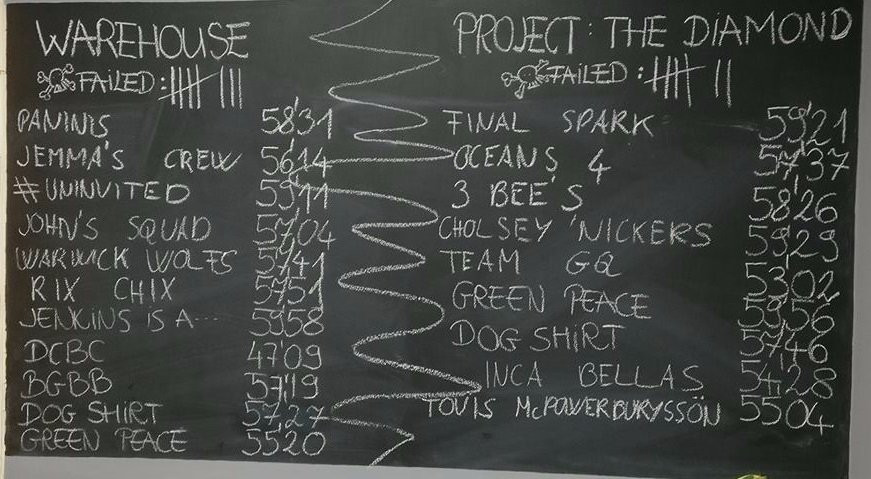 WAREHOUSE
FAILED: |||| |||
PANINIS 58'31
JEMMA'S CREW 56'14
#UNINVITED 59'11
JOHN'S SQUAD 57'04
WARWICK WOLFS 57'41
RIX CHIX 57'51
JENKINS IS A... 59'58
DCBC 47'09
BGBB 57'19
DOG SHIRT 57'27
GREEN PEACE 55'20
PROJECT: THE DIAMOND
FAILED: |||| ||
FINAL SPARK 59'21
OCEANS 4 57'37
3 BEE'S 58'26
CHOLSEY 'NICKERS 59'29
TEAM GQ 53'02
GREEN PEACE 59'56
DOG SHIRT 57'46
INCA BELLAS 54'28
TOVIS McPOWERBURYSSÖN 55'04